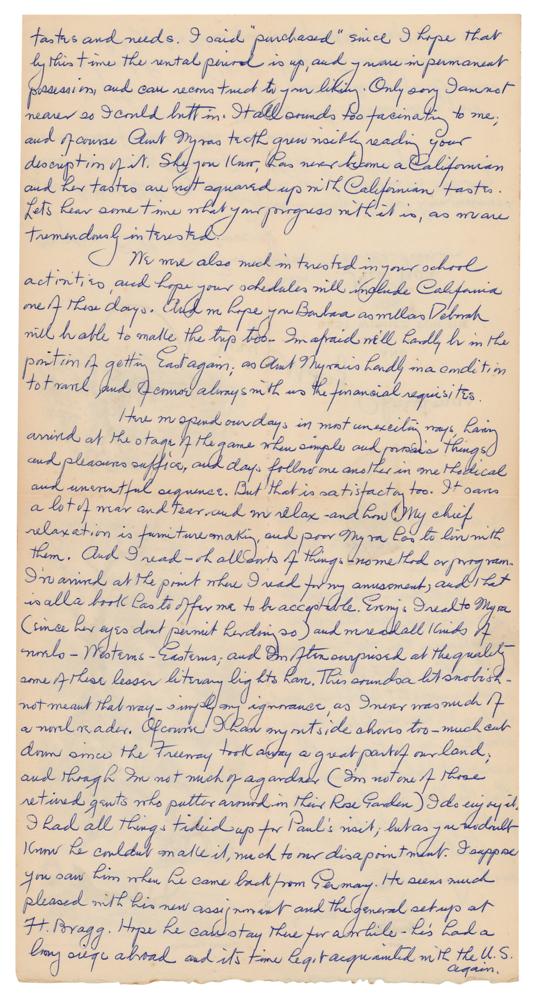 tastes and needs. I said "purchased" since I hope that
by this time the rental period is up, and you are in permanent
possession, and can reconstruct to your liking. Only sorry I am not
nearer so I could butt in. It all sounds too fascinating to me;
and of course Aunt Myras teeth grew visibly reading your
description of it. She, you know, has never become a Californian
and her tastes are not squared up with Californian tastes.
Lets hear some time what your progress with it is, as we are
tremendously interested.
We were also much interested in your school
activities, and hope your schedules will include California
one of these days. And we hope you Barbara as well as Deborah
will be able to make the trip too - Im afraid we'll hardly be in the
position of getting East again; as Aunt Myra is hardly in a condition
to travel and of course always with us the financial requisites.
Here we spend our days in most unexciting ways, having
arrived at the stage of the game when simple and prosaic things
and pleasures suffice, and days follow one another in methodical
and uneventful sequence. But that is satisfactory too. It saves
a lot of wear and tear and we relax - and how! My chief
relaxation is furniture making, and poor Myra has to live with
them. And I read - oh all sorts of things - no method or program.
I've arrived at the point where I read for my amusement, and that
is all a book has to offer me to be acceptable. Evenings I read to Myra
(since her eyes dont permit her doing so) and we read all kinds of
novels - Westerns - Easterns; and Im often surprised at the quality
some of these lesser literary lights have. This sounds a bit snobish -
not meant that way - simply my ignorance, as I never was much of
a novel reader. Of course I have my outside chores too - much cut
down since the Freeway took away a great part of our land;
and though Im not much of a gardner (Im not one of those
retired gents who putter around in their Rose Garden) I do enjoy it.
I had all things tidied up for Paul's visit; but as you no doubt
know he couldnt make it, much to our disapointment. I suppose
you saw him when he came back from Germany. He seems much
pleased with his new assignment and the general setup at
Ft. Bragg. Hope he can stay there for a while - he's had a
long siege abroad and its time he got acquainted with the U.S.
again.